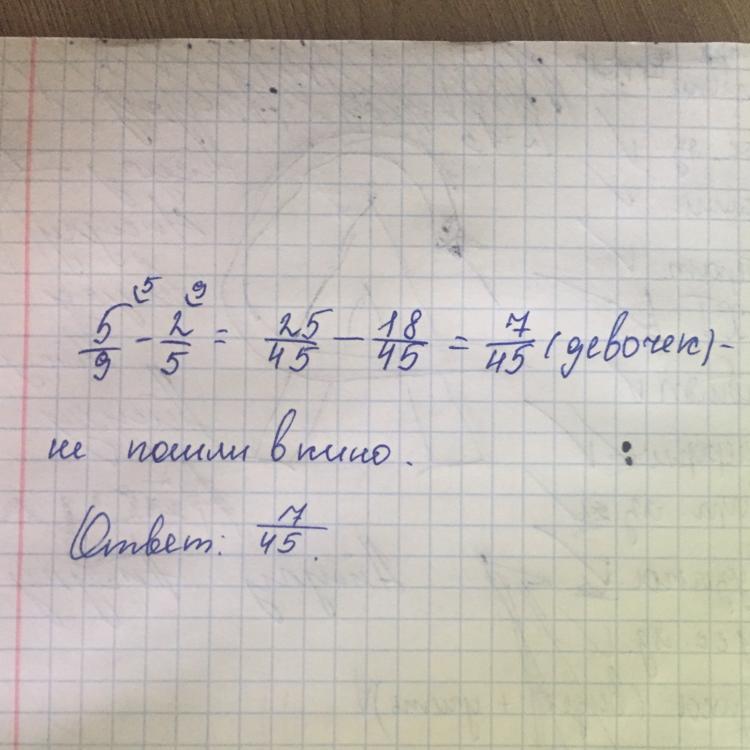 5/9 - 2/5 = 25/45 - 18/45 = 7/45 (девочек) -
не пошли в кино.
Ответ: 7/45.